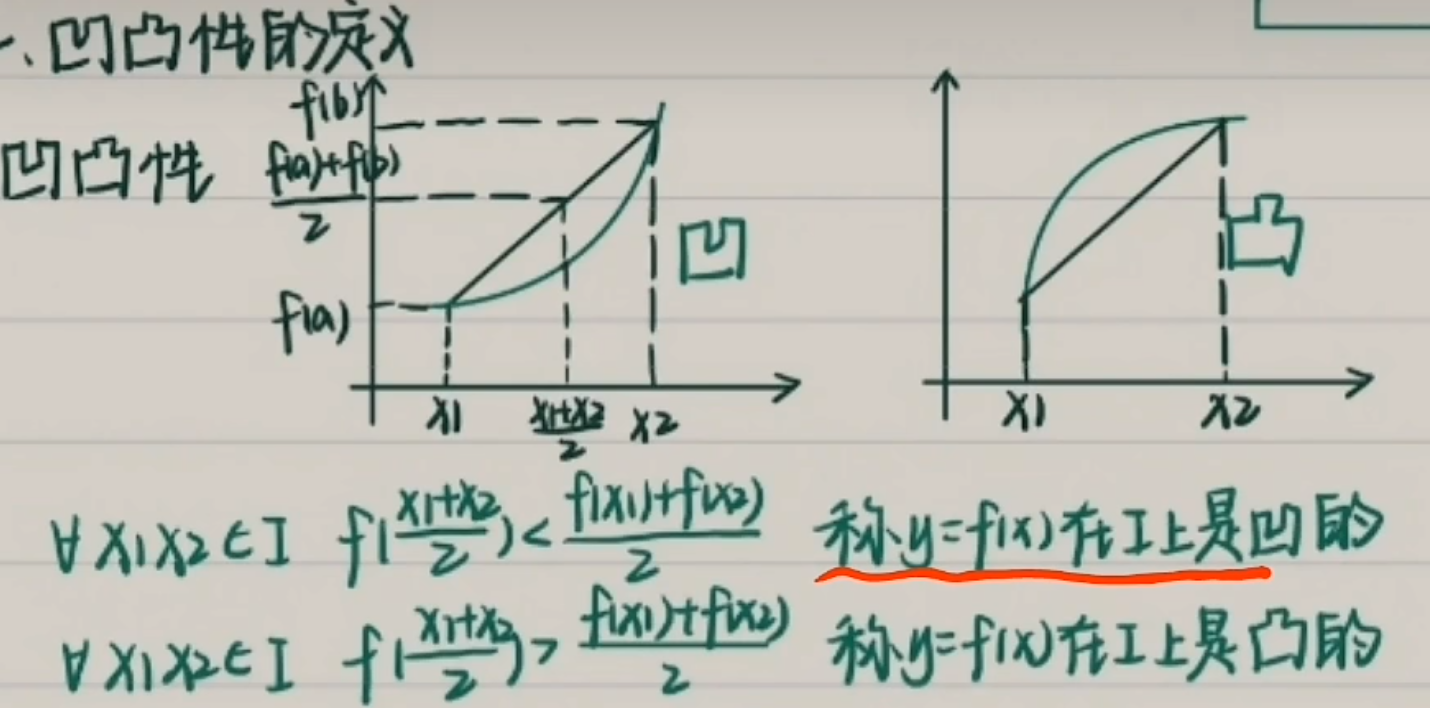 一、凹凸性的定义
凹凸性
f(b)
f(a)+f(b)
2
f(a)
x1
x1+x2
2
x2
凹
x1
x2
凸
∀ x1 x2 ∈ I f(x1+x2/2) < f(x1)+f(x2)/2 称y=f(x)在I上是凹的
∀ x1 x2 ∈ I f(x1+x2/2) > f(x1)+f(x2)/2 称y=f(x)在I上是凸的